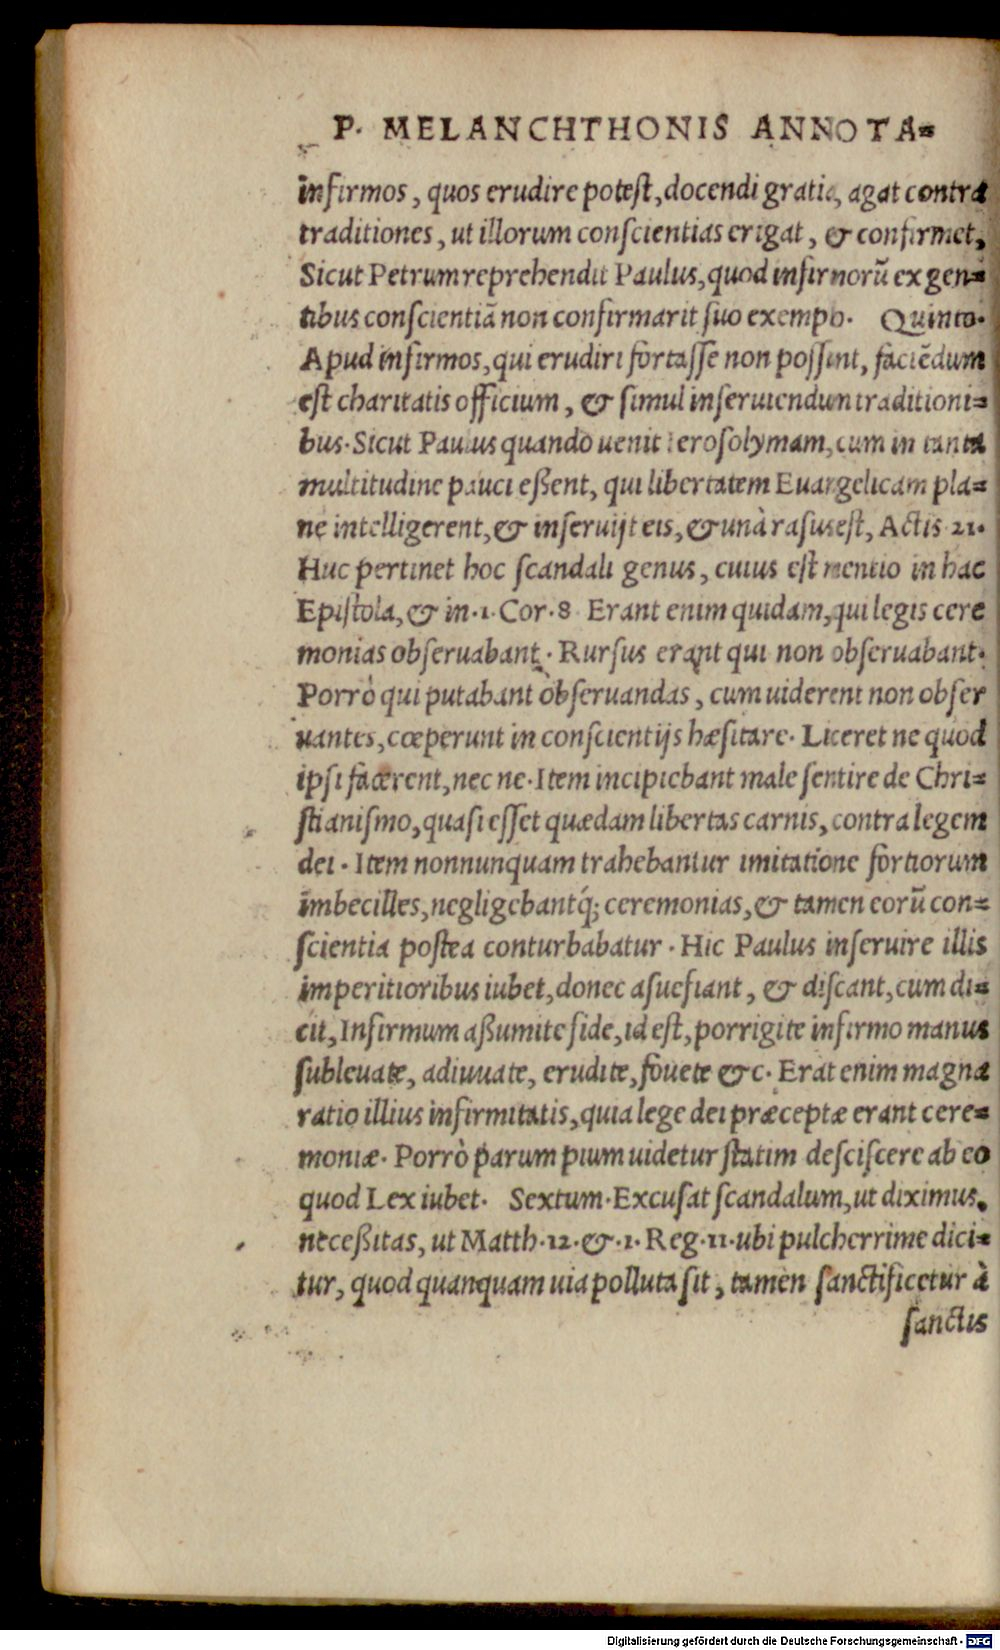 P. MELANCHTHONIS ANNOTA=
infirmos, quos erudire potest, docendi gratia, agat contra
traditiones, ut illorum conscientias erigat, & confirmet,
Sicut Petrum reprehendit Paulus, quod infirmorũ ex gen=
tibus conscientiã non confirmarit suo exemplo. Quinto.
Apud infirmos, qui erudiri fortasse non possint, faciẽdum
est charitatis officium, & simul inseruiendum traditioni=
bus. Sicut Paulus quando uenit Ierosolymam, cum in tanta
multitudine pauci eßent, qui libertatem Euangelicam pla=
ne intelligerent, & inseruijt eis, & unà rasus est, Actis 21.
Huc pertinet hoc scandali genus, cuius est mentio in hac
Epistola, & in .1. Cor. 8 Erant enim quidam, qui legis cere
monias obseruabant. Rursus erant qui non obseruabant.
Porrò qui putabant obseruandas, cum uiderent non obser
uantes, cœperunt in conscientijs hæsitare. Liceret ne quod
ipsi facerent, nec ne. Item incipiebant male sentire de Chri=
stianismo, quasi esset quædam libertas carnis, contra legem
dei. Item nonnunquam trahebantur imitatione fortiorum
imbecilles, negligebantq́; ceremonias, & tamen eorũ con=
scientia postea conturbabatur. Hic Paulus inseruire illis
imperitioribus iubet, donec asuefiant, & discant, cum di=
cit, Infirmum aßumite fide, id est, porrigite infirmo manus
subleuate, adiuuate, erudite, fouete &c. Erat enim magna
ratio illius infirmitatis, quia lege dei præceptæ erant cere=
moniæ. Porrò parum pium uidetur statim desciscere ab eo
quod Lex iubet. Sextum. Excusat scandalum, ut diximus.
neceßitas, ut Matth. 12. & .1. Reg. 11. ubi pulcherrime dici=
tur, quod quanquam uia polluta sit, tamen sanctificetur à
sanctis
Digitalisierung gefördert durch die Deutsche Forschungsgemeinschaft - DFG